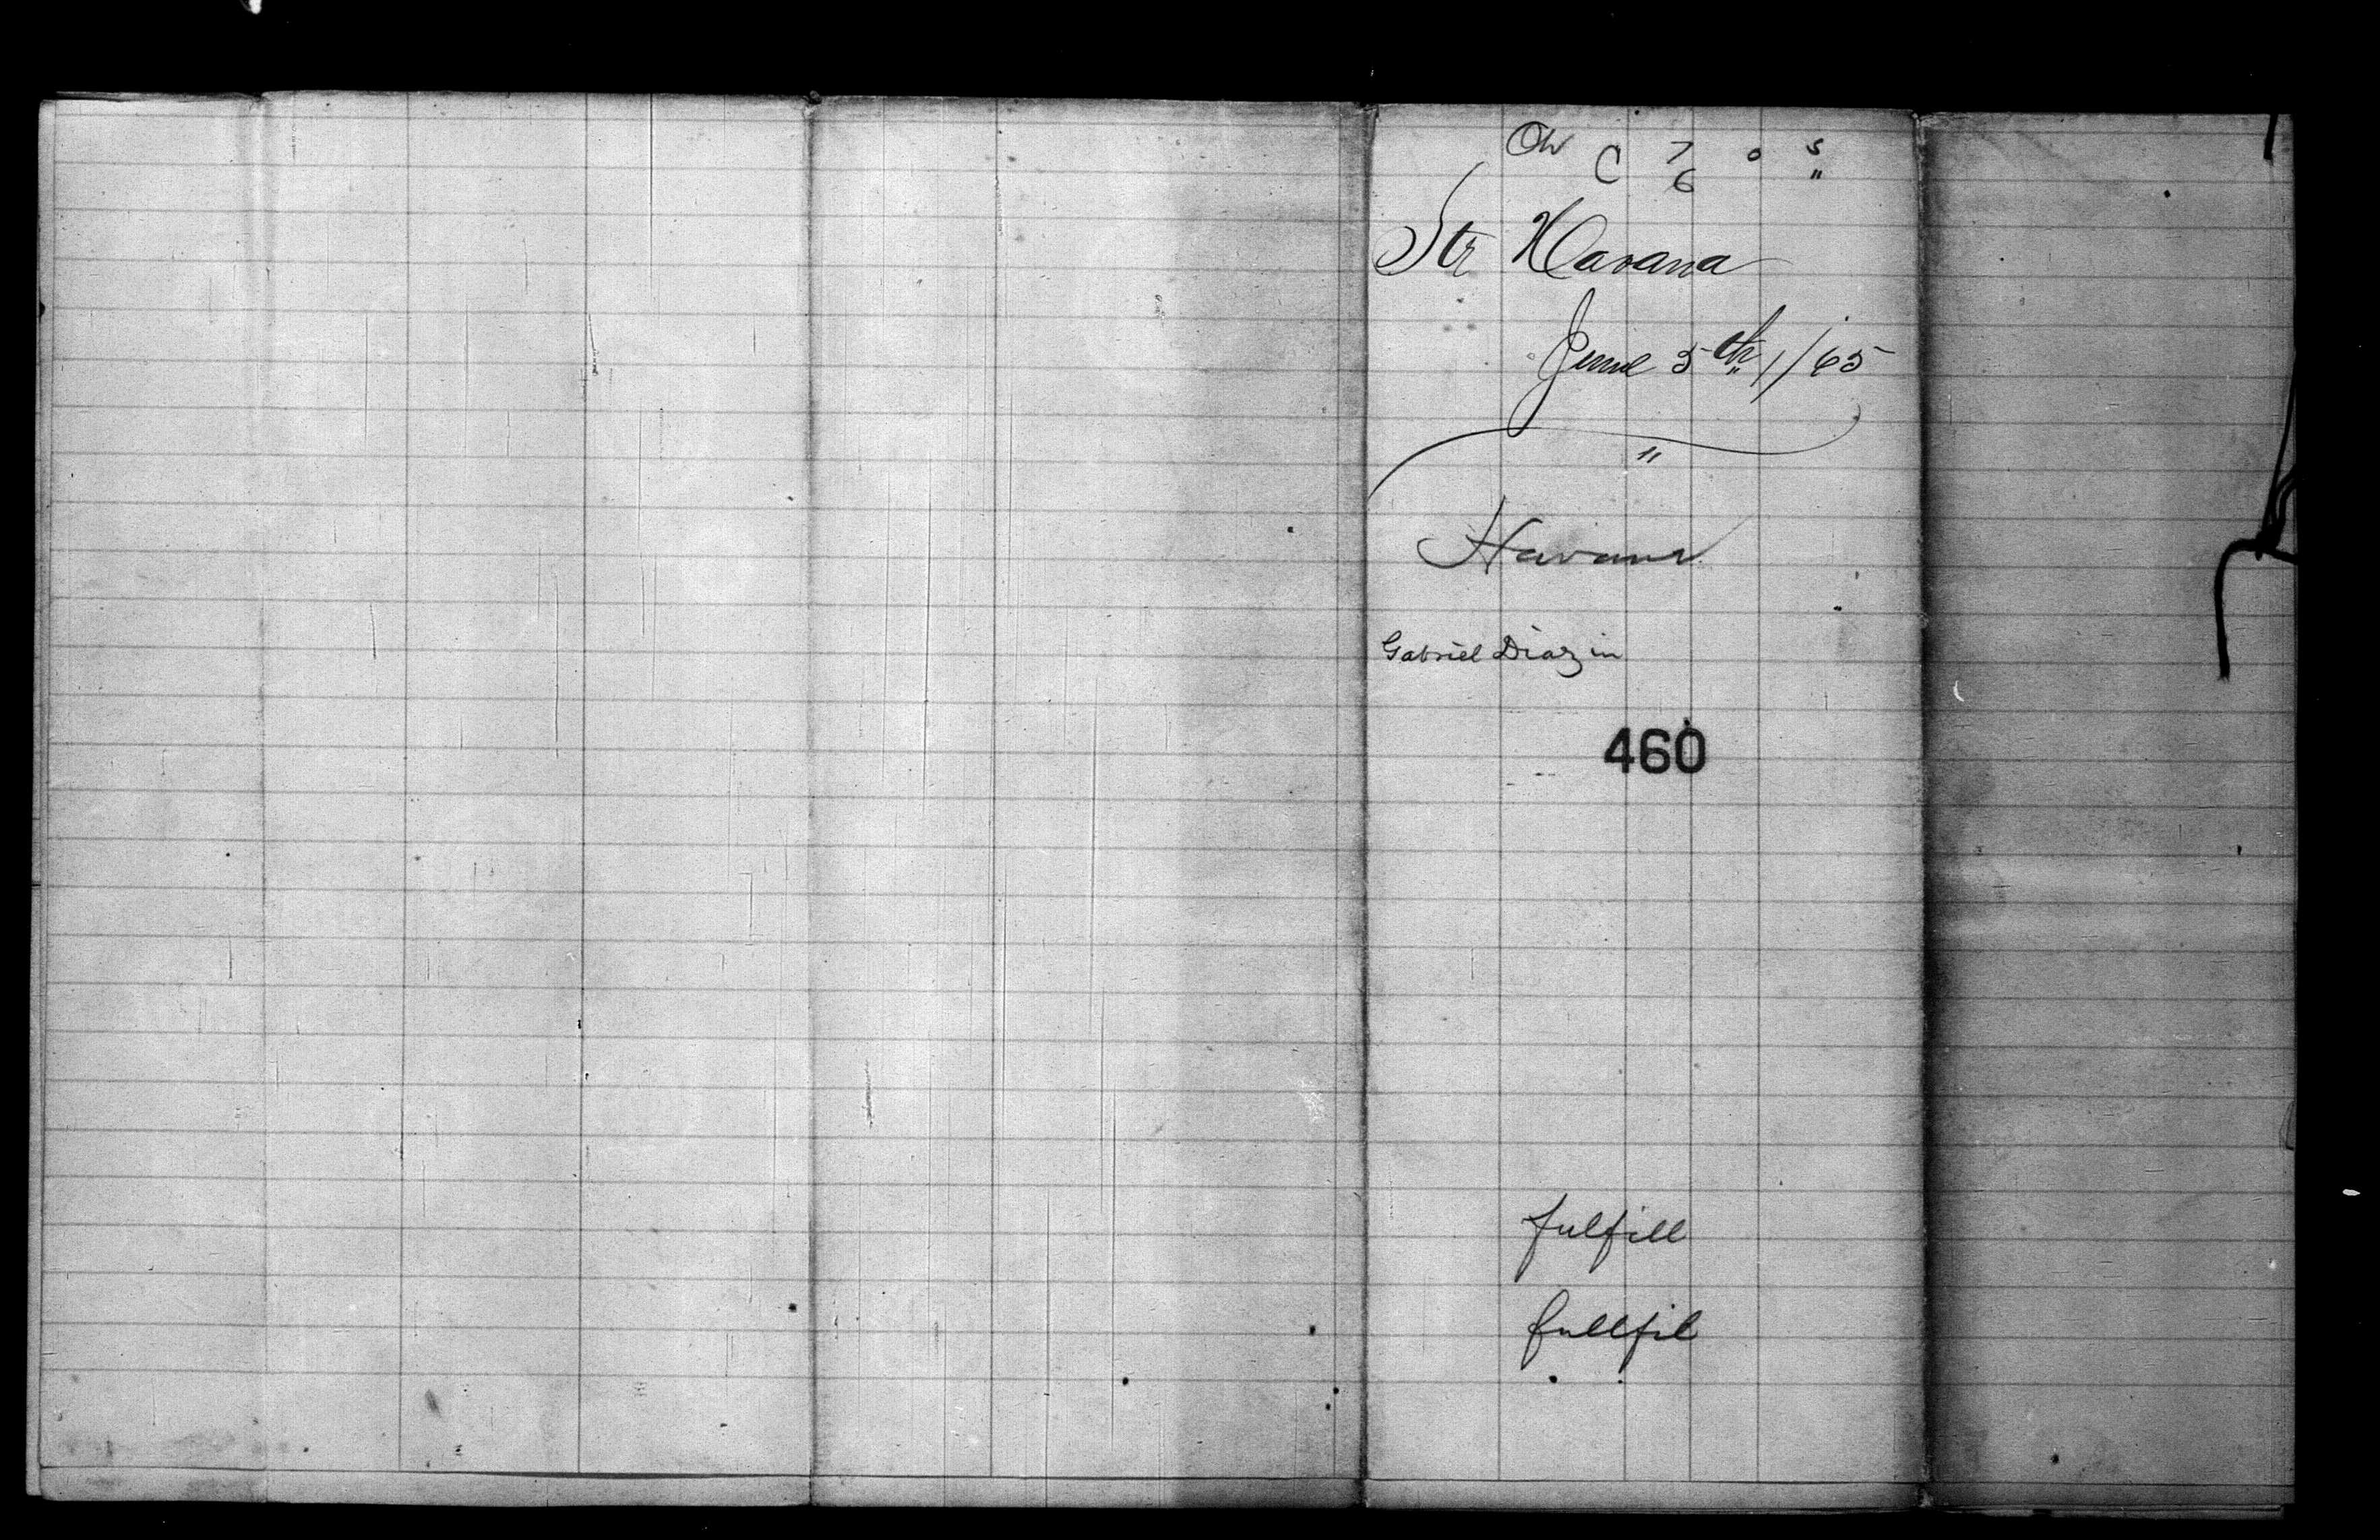 C 7 0 5
6 "
Str Havana
June 5th // 65
"
Havana
Gabriel Diaz in
460
fulfill
fullfil